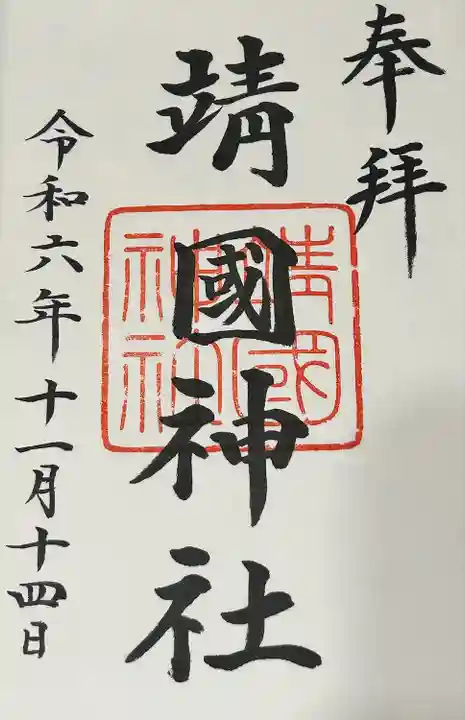 奉拝
靖國神社
靖國
神社
令和六年十一月十四日